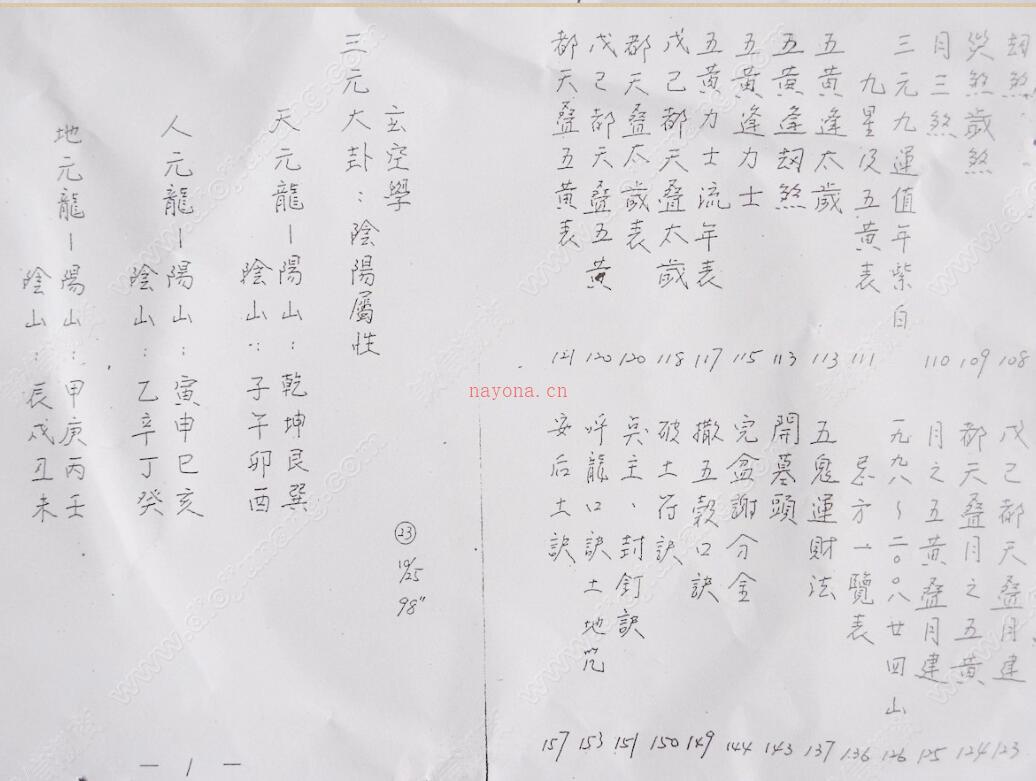 劫煞 108
災煞歲煞 109
月三煞 110
三元九運值年紫白
九星及五黃表 111
五黃逢太歲 113
五黃逢劫煞 113
五黃逢力士 115
五黃力士流年表 117
戊己都天叠太歲 118
都天叠太歲表 120
戊己都天叠五黃 120
都天叠五黃表 121
戊己都天叠月建 123
都天叠月之五黃 124
月之五黃叠月建 125
一九九八~二〇〇八廿四山 126
忌方一覽表 136
五鬼運財法 137
開墓頭 143
完盆謝分金 144
撒五穀口訣 149
破土符訣 150
吳主、封釘訣 151
呼龍口訣土地咒 153
安后土訣 157
玄空學
三元大卦:陰陽屬性
天元龍-陽山:乾坤艮巽
陰山:子午卯酉
人元龍-陽山:寅申巳亥
陰山:乙辛丁癸
地元龍-陽山:甲庚丙壬
陰山:辰戌丑未
23
10/25
98"
-1-
nayona.cn